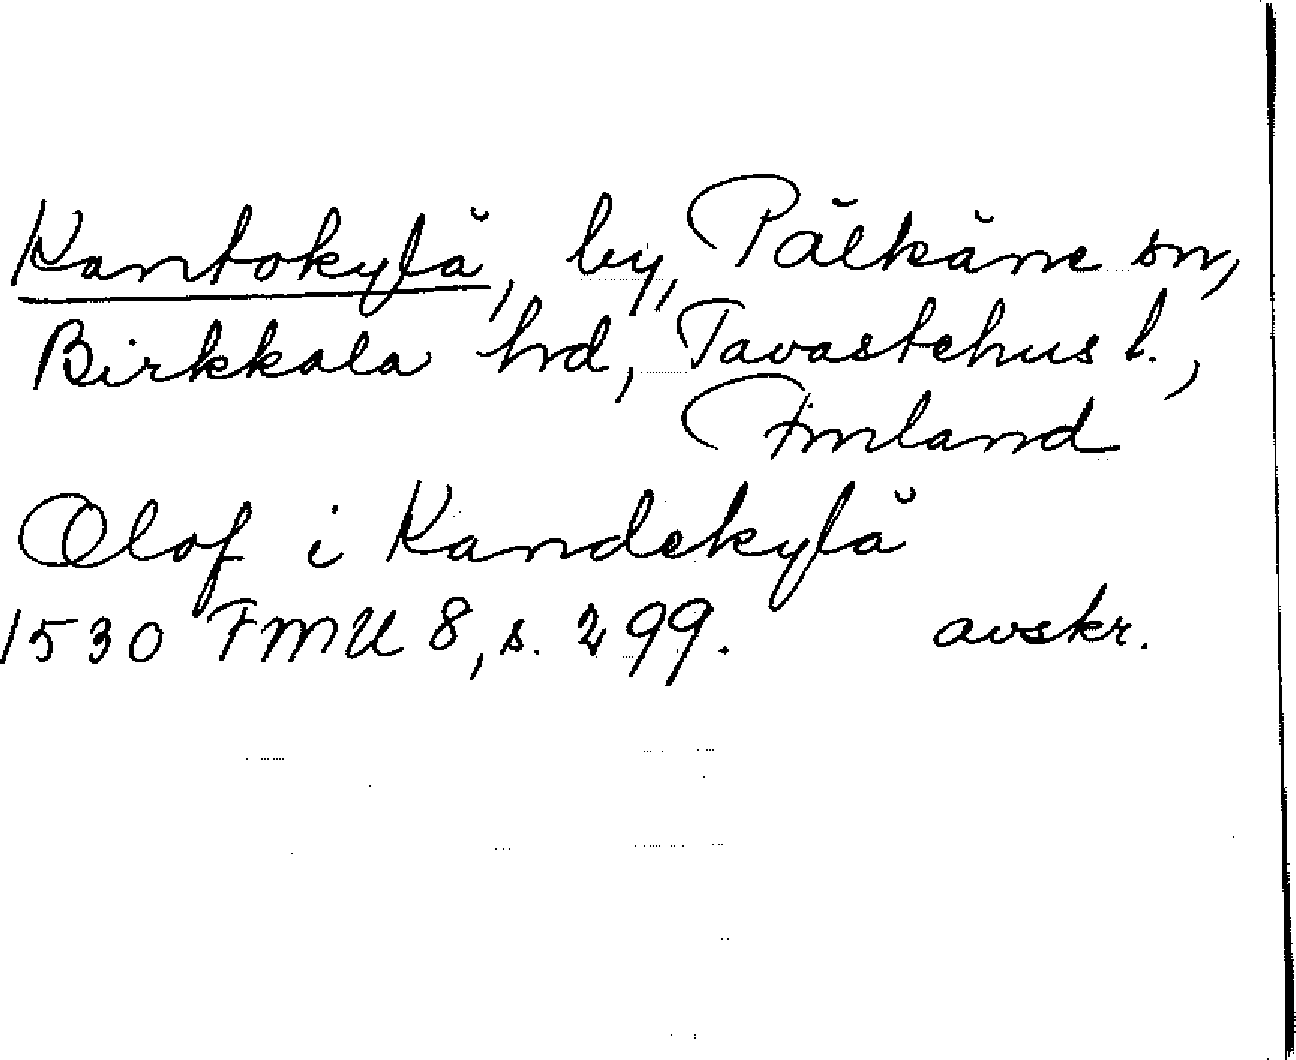 Kantokylä, by, Pälkäne sn,
Birkkala hd, Tavastehus l.,
Finland
Olof i Kandekylä
1530 FMU 8, s. 299. avskr.